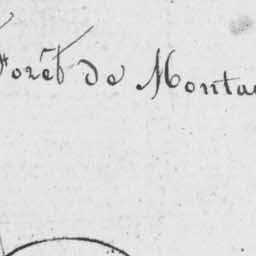 Forêt de Monta